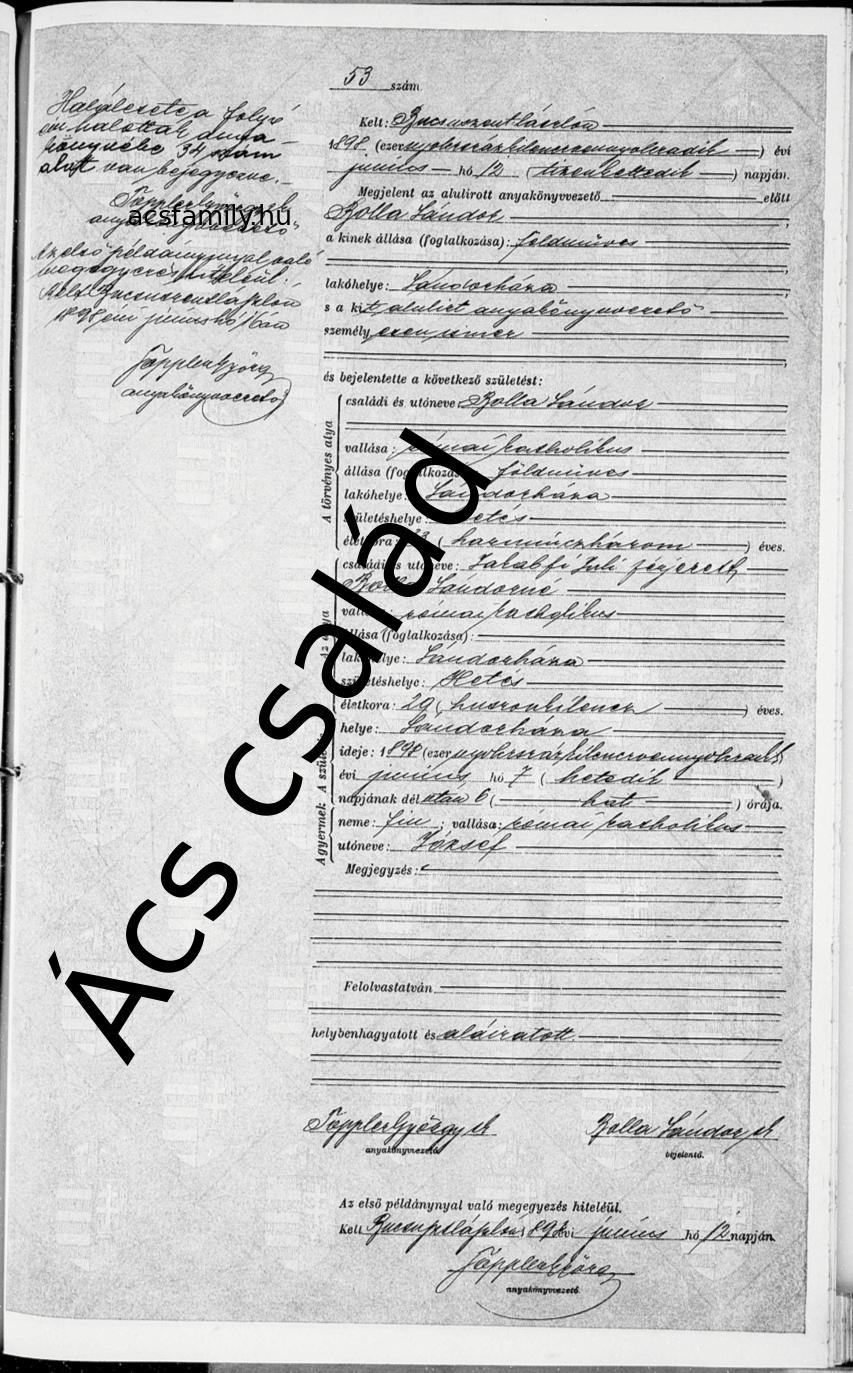 53 szám
Halálesete a folyó
évi halottak anya-
könyvébe 34 szám
alatt van bejegyezve.
Toppler György
anyakönyvvezető
acsfamily.hu
Az első példánynyal való
megegyezés hiteléül:
Kelt Bucsuszentlászlón
1898 évi június hó 16án
Toppler György
anyakönyvvezető
Kelt: Bucsuszentlászlón
1898 (ezernyolcszázkilencvennyolcadik) évi
június hó 12 (tizenkettedik) napján.
Megjelent az alulirott anyakönyvvezető előtt
Bolla Sándor,
a kinek állása (foglalkozása): földműves
lakóhelye: Sándorháza
s a kit alulirt anyakönyvvezető
személyesen ismer
és bejelentette a következő születést:
A törvényes atya
családi és utóneve: Bolla Sándor
vallása: római katholikus
állása (foglalkozása): földműves
lakóhelye: Sándorháza
születéshelye: Hetés
életkora: 33 (harminczhárom) éves.
Az anya
családi és utóneve: Jakabfi Juli férjezett
Bolla Sándorné
vallása: római katholikus
állása (foglalkozása):
lakóhelye: Sándorháza
születéshelye: Hetés
életkora: 29 (huszonkilencz) éves.
A gyermek A szüle
helye: Sándorháza
ideje: 1898 (ezernyolcszázkilencvennyolcadik)
évi június hó 7 (hetedik)
napjának délután 6 (hat) órája.
neme: fiu; vallása: római katholikus
utóneve: József
Megjegyzés:
Felolvastatván
helybenhagyatott és aláiratott.
Toppler György sk
anyakönyvvezető.
Bolla Sándor sk
bejelentő.
Az első példánynyal való megegyezés hiteléül.
Kelt Bucsuszentlászlón 1898 évi június hó 12 napján.
Toppler György
anyakönyvvezető.
Ács család